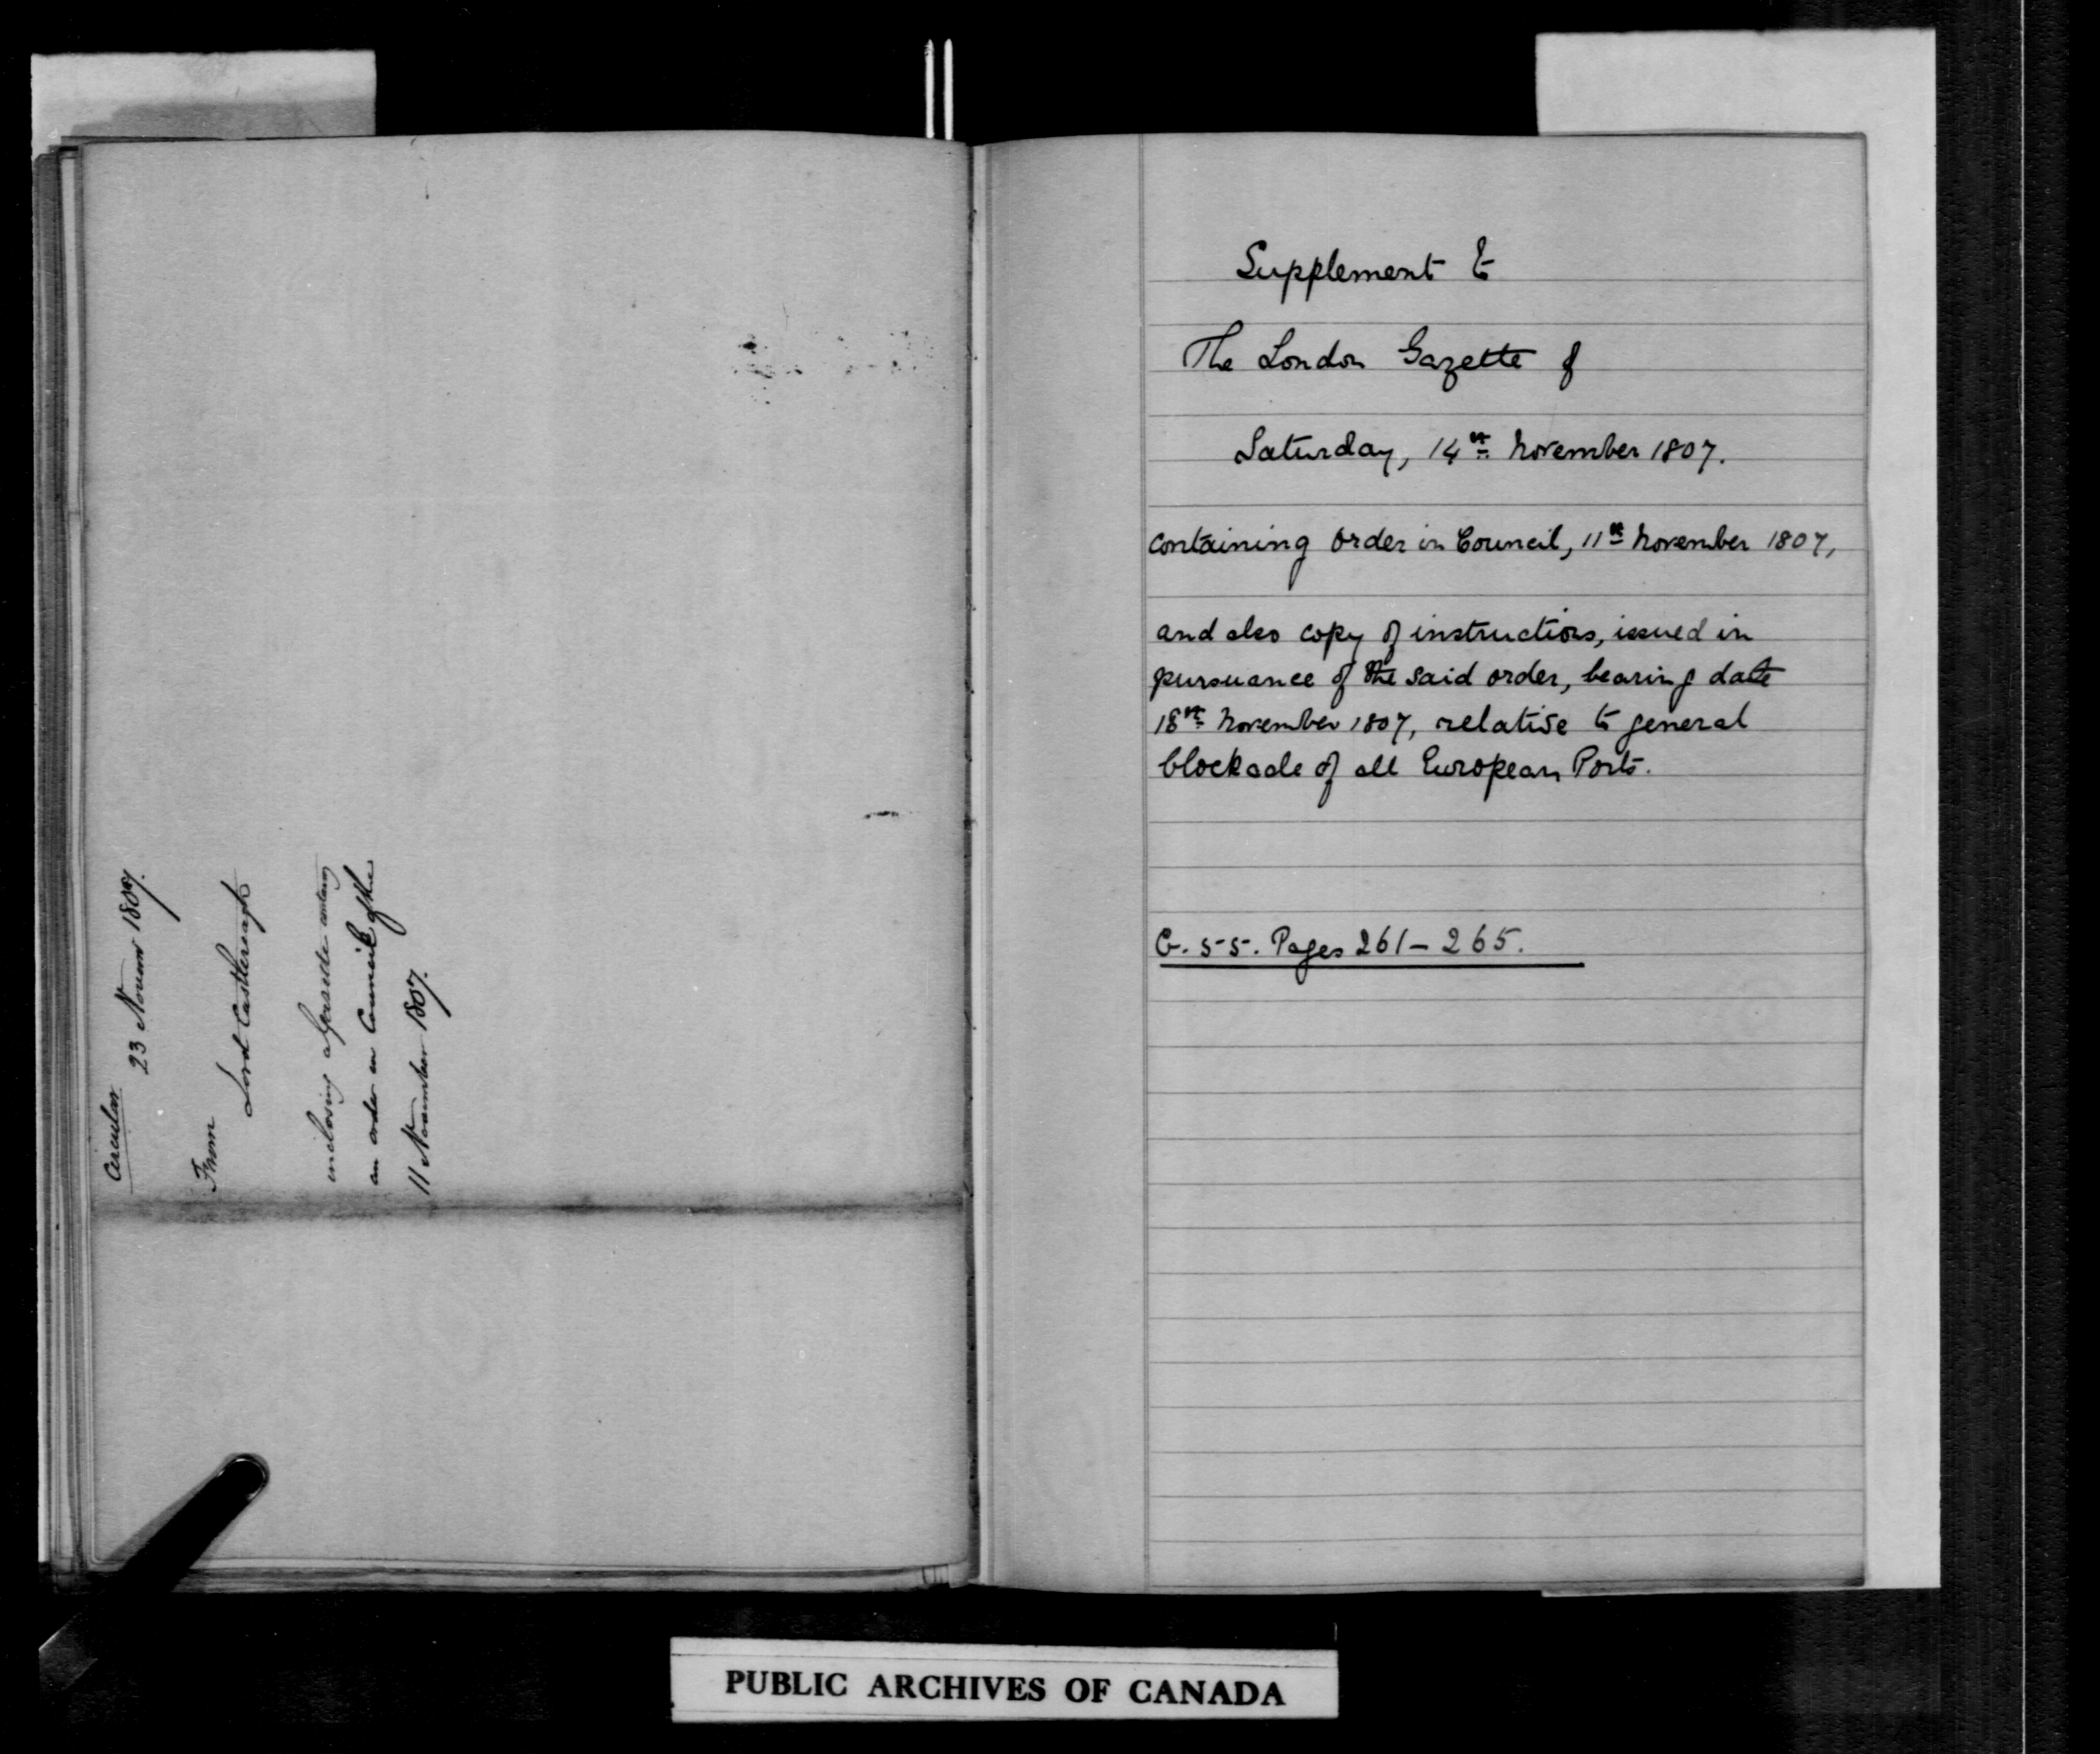 Circular
23 Novemr 1807.
From
Lord Castlereagh
inclosing a Gazette containg
an order in Council of the
11 November 1807.
Supplement to
The London Gazette of
Saturday, 14th November 1807.
containing Order in Council, 11th November 1807,
and also copy of instructions, issued in
pursuance of the said order, bearing date
18th November 1807, relative to general
blockade of all European Ports.
G. 55. Pages 261-265.
PUBLIC ARCHIVES OF CANADA